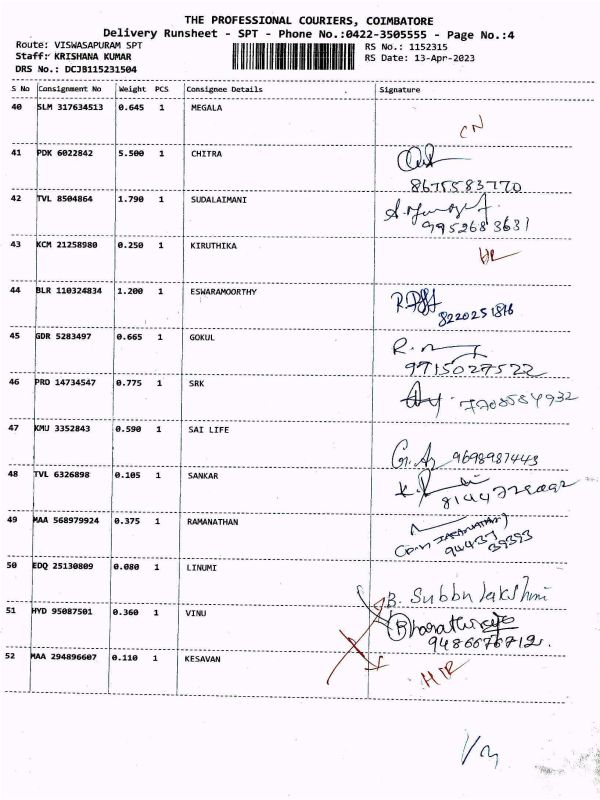 THE PROFESSIONAL COURIERS, COIMBATORE
Delivery Runsheet - SPT - Phone No.:0422-3505555 - Page No.:4
Route: VISWASAPURAM SPT RS No.: 1152315
Staff: KRISHANA KUMAR RS Date: 13-Apr-2023
DRS No.: DCJB115231504
S No Consignment No Weight PCS Consignee Details Signature
40 SLM 317634513 0.645 1 MEGALA
CN
41 PDK 6022842 5.500 1 CHITRA
8675583770
42 TVL 8504864 1.790 1 SUDALAIMANI
9952683631
43 KCM 21258980 0.250 1 KIRUTHIKA
44 BLR 110324834 1.200 1 ESWARAMOORTHY
8220251816
45 GDR 5283497 0.665 1 GOKUL
9715027522
46 PRO 14734547 0.775 1 SRK
7708584932
47 KMU 3352843 0.590 1 SAI LIFE
9698987443
48 TVL 6326898 0.105 1 SANKAR
49 MAA 568979924 0.375 1 RAMANATHAN
94437
39393
50 EDQ 25130809 0.080 1 LINUMI
B. Subbulakshmi
51 HYD 95087501 0.360 1 VINU
9486676712
52 MAA 294896607 0.110 1 KESAVAN